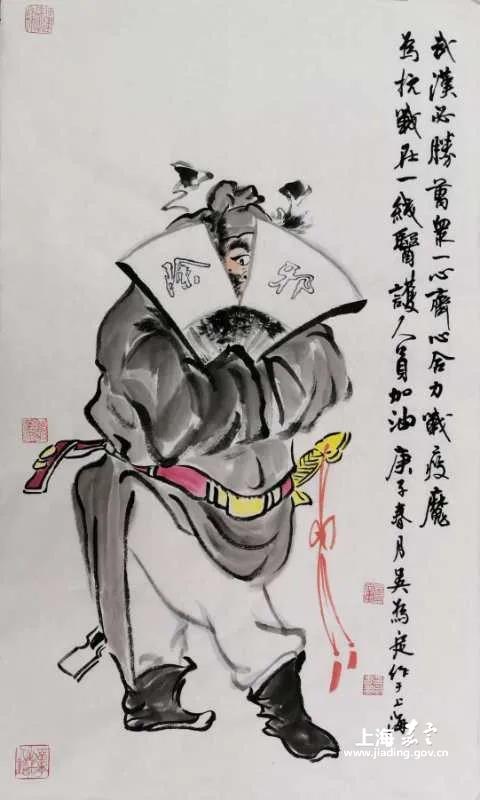 武漢必勝萬眾一心齊心合力戰疫魔
為抗戰在一綫醫護人員加油 庚子春月吳為定作于上海
除邪
上海嘉定
www.jiading.gov.cn